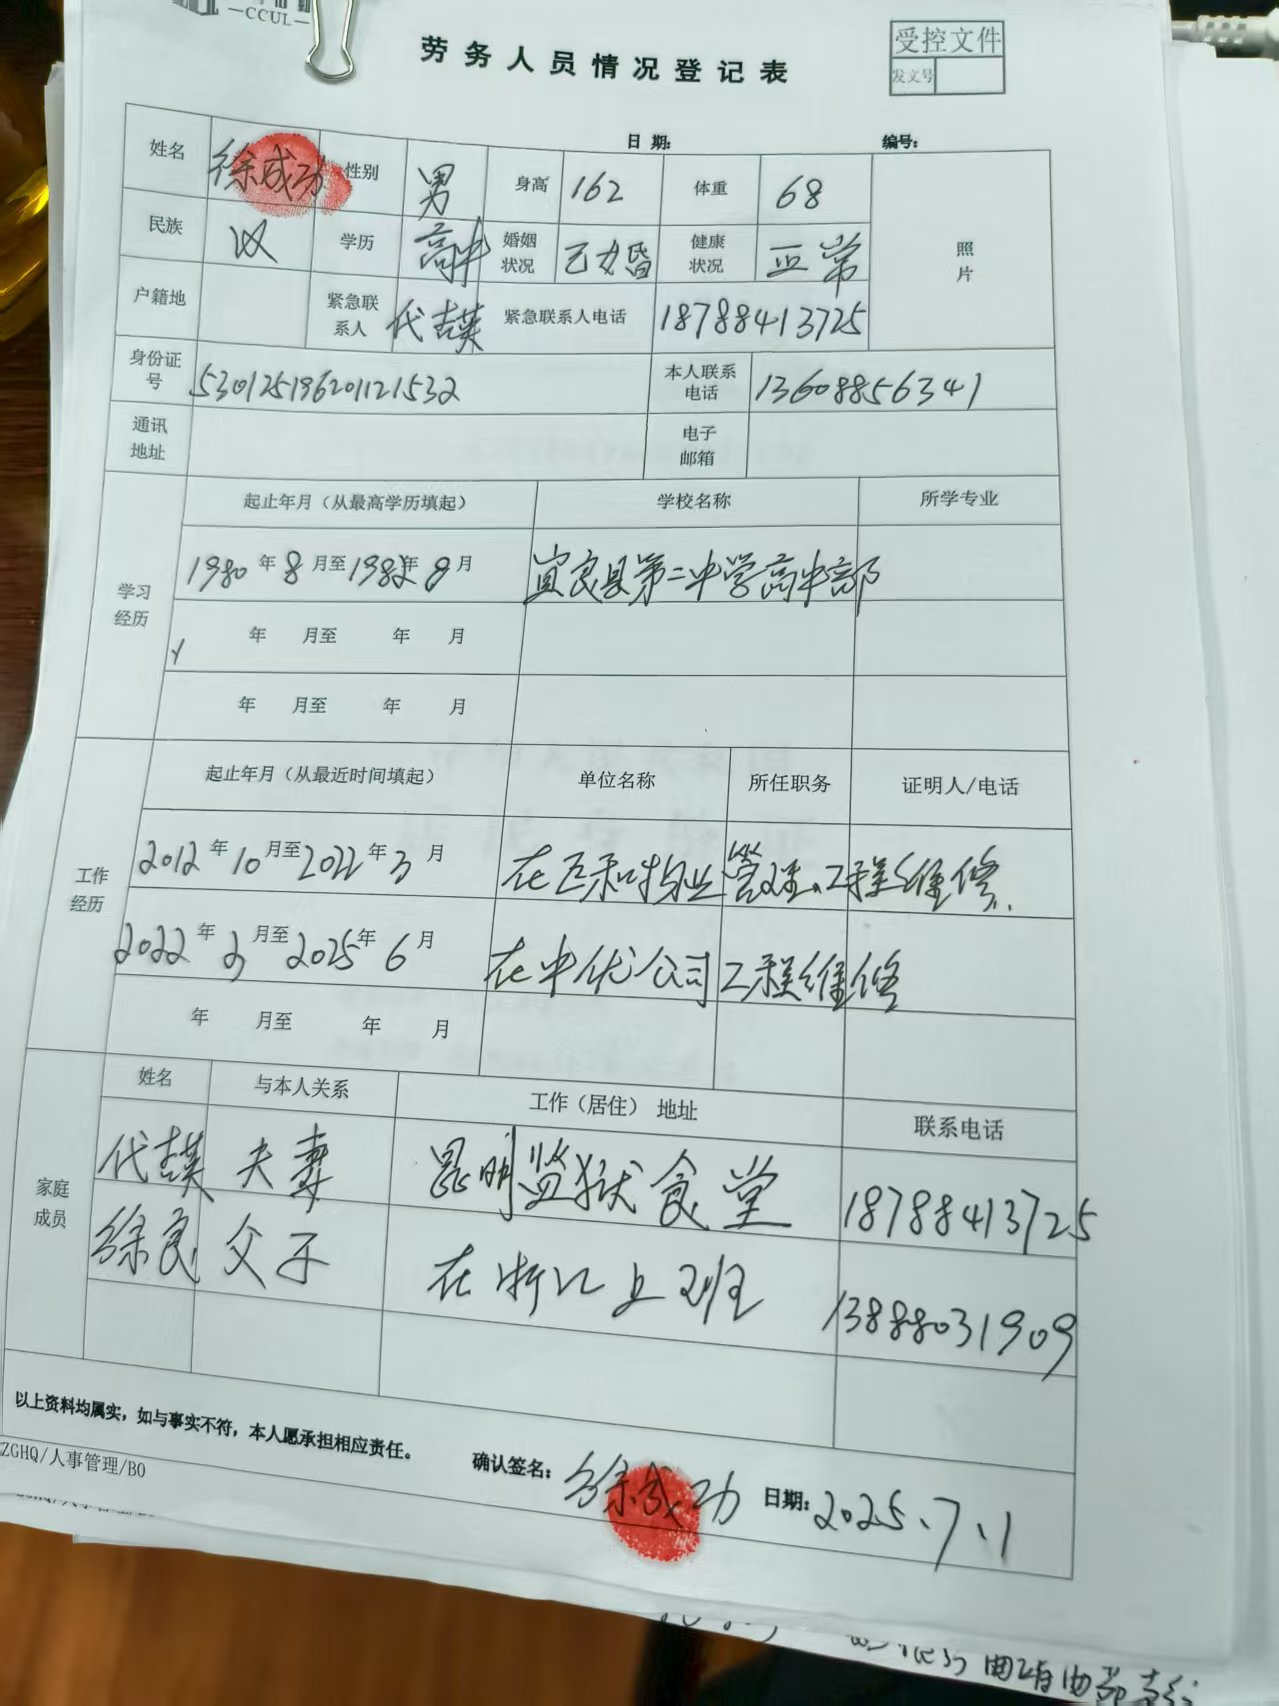 —CCUL—
劳务人员情况登记表
受控文件
发文号
日期: 编号:
姓名 徐成功 性别 男 身高 162 体重 68
照片
民族 汉 学历 高中 婚姻状况 已婚 健康状况 正常
户籍地 紧急联系人 代吉英 紧急联系人电话 18788413725
身份证号 530125196201121532 本人联系电话 13608856341
通讯地址 电子邮箱
学习经历
起止年月（从最高学历填起） 学校名称 所学专业
1980年8月至1982年8月 宜良县第二中学高中部
年 月至 年 月
年 月至 年 月
工作经历
起止年月（从最近时间填起） 单位名称 所任职务 证明人/电话
2012年10月至2022年3月 在巨和物业管理、工程维修.
2022年3月至2025年6月 在中优公司工程维修
年 月至 年 月
家庭成员
姓名 与本人关系 工作（居住）地址 联系电话
代吉英 夫妻 昆明监狱食堂 18788413725
徐良 父子 在浙江上班 13888031909
以上资料均属实，如与事实不符，本人愿承担相应责任。
确认签名: 徐成功 日期: 2025、7、1
ZGHQ/人事管理/B0